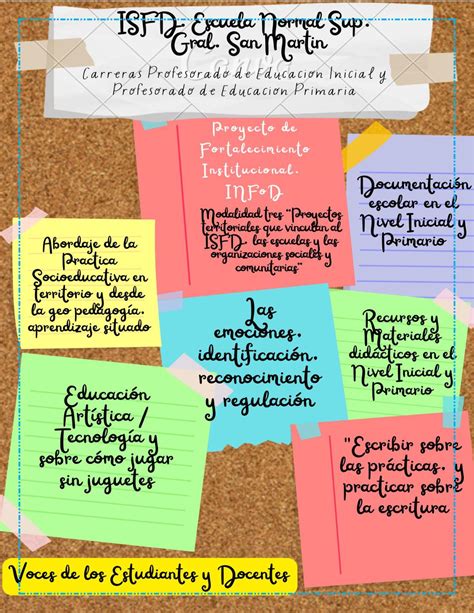 ISFD. Escuela Normal Sup.
Gral. San Martin
Canva
Carreras Profesorado de Educacion Inicial y
Profesorado de Educacion Primaria
Proyecto de
Fortalecimiento
Institucional.
INFoD
Modalidad tres "Proyectos
territoriales que vinculan al
ISFD. las escuelas y las
organizaciones sociales y
comunitarias"
Documentación
escolar en el
Nivel Inicial y
Primario
Abordaje de la
Practica
Socioeducativa en
territorio y desde
la geo pedagogía.
aprendizaje situado
Las
emociones.
identificación.
reconocimiento
y regulación
Recursos y
Materiales
didácticos en el
Nivel Inicial y
Primario
Educación
Artística /
Tecnología y
sobre cómo jugar
sin juguetes
"Escribir sobre
las prácticas. y
practicar sobre
la escritura
Voces de los Estudiantes y Docentes